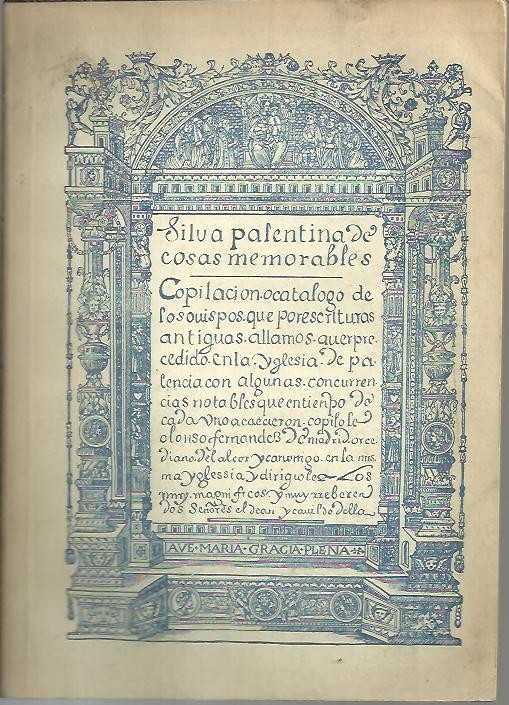 Silva palentina de
cosas memorables
Copilacion. o catalogo de
los ovispos. que por escrituras
antiguas. allamos. aver pre
cedido. en la. yglesia. de pa
lencia con algunas. concurren
cias notables que en tienpo de
cada vno acaecieron. copilo le
alonso fernandez de madrid arce
diano del alcor y canonigo. en la mis
ma yglessia y dirigiole a los
muy. magnificos y muy rreberen
dos señores el dean y cavildo della
AVE · MARIA · GRACIA · PLENA